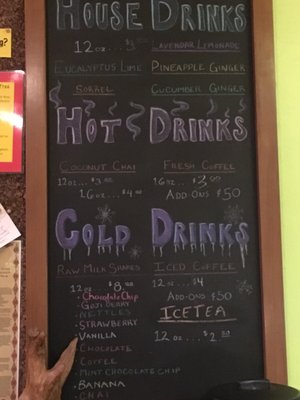 HOUSE DRINKS
12 oz... $3.00 LAVENDAR LEMONADE
EUCALYPTUS LIME PINEAPPLE GINGER
SORREL CUCUMBER GINGER
HOT DRINKS
COCONUT CHAI FRESH COFFEE
12oz... $3.00 16oz... $3.00
16oz... $4.00 ADD-ONS $.50
COLD DRINKS
RAW MILK SHAKES ICED COFFEE
12oz... $8.00 12oz... $4
• Chocolate Chip ADD-ONS $.50
• GOJI BERRY
• NETTLES ICE TEA
• STRAWBERRY
• VANILLA 12 oz... $2.00
• CHOCOLATE
• COFFEE
• MINT CHOCOLATE CHIP
• BANANA
• CHAI